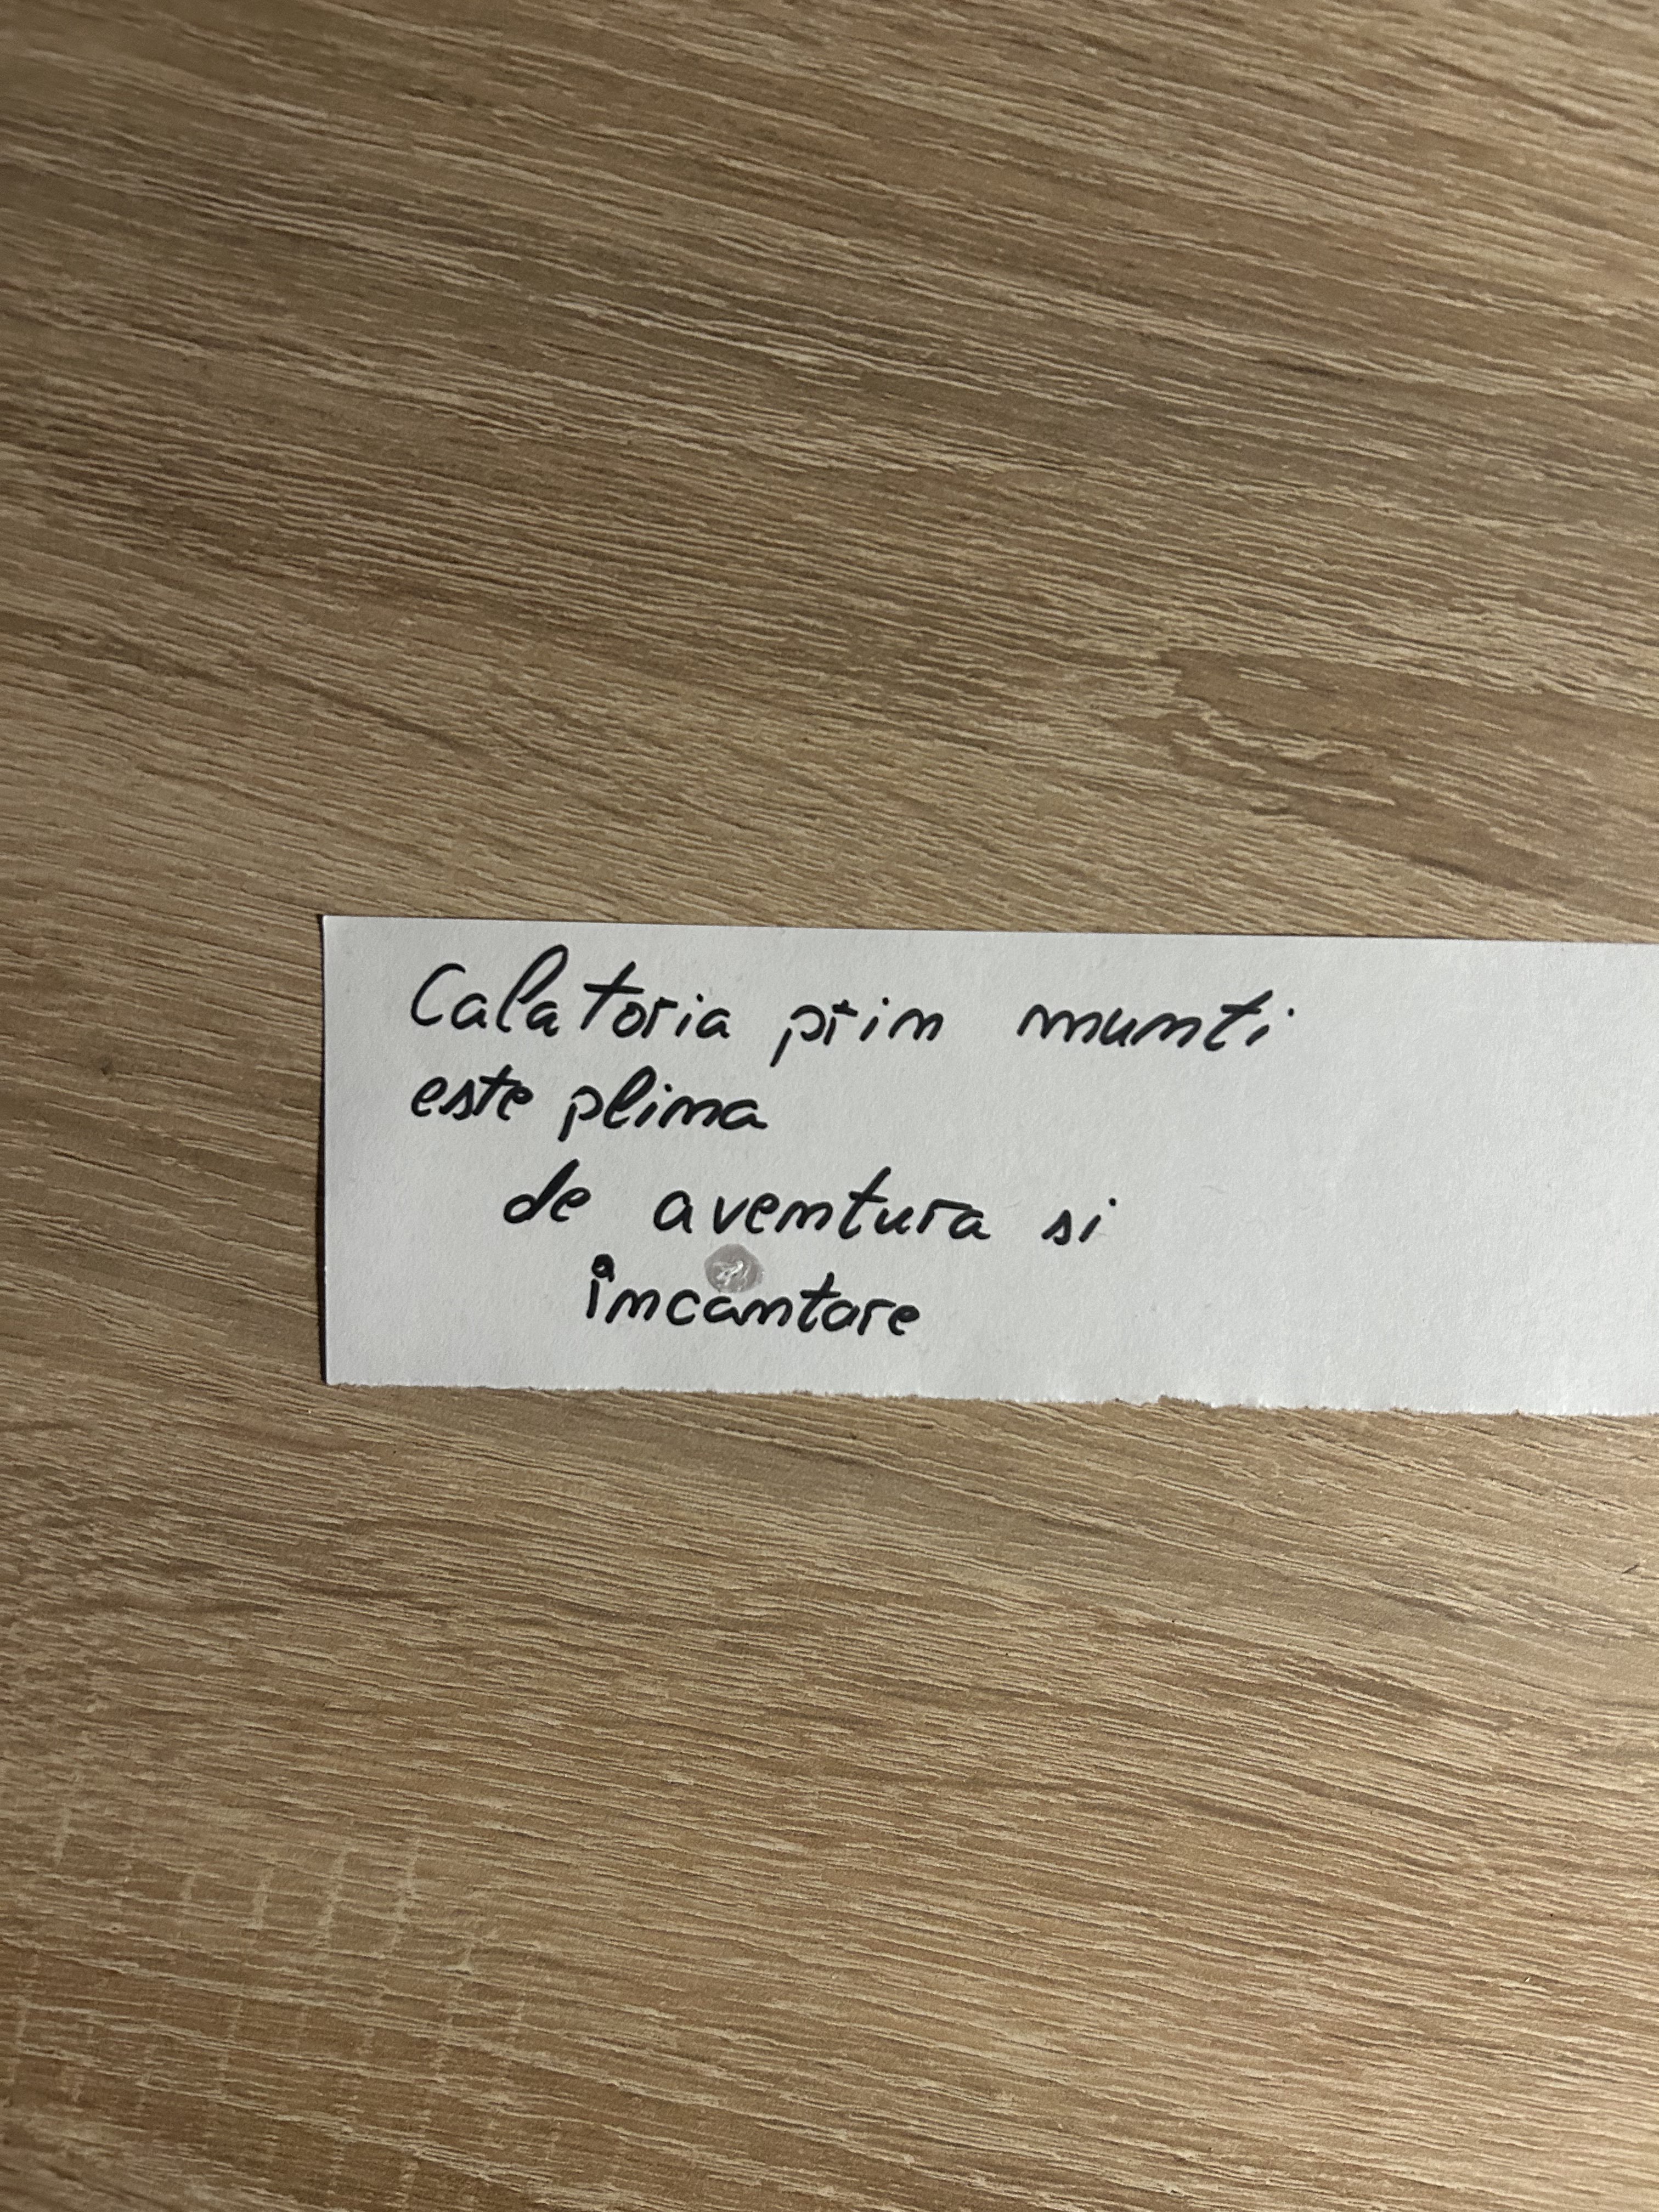 Calatoria prin munti
este plina
de aventura si
încantare